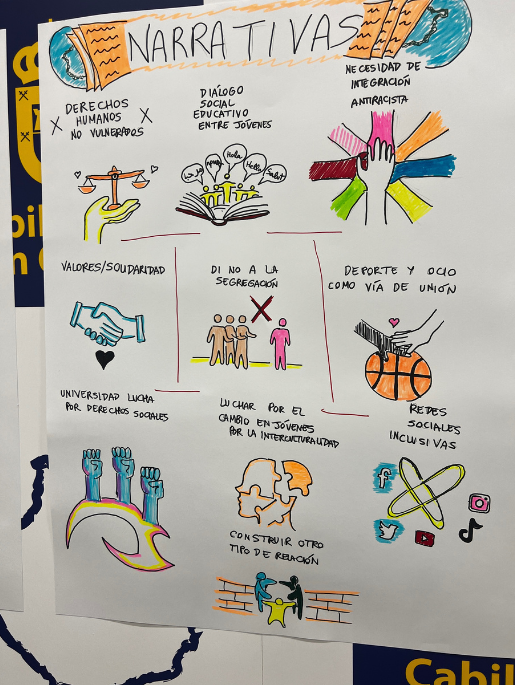 NARRATIVAS
DERECHOS
HUMANOS
NO VULNERADOS
DIÁLOGO
SOCIAL
EDUCATIVO
ENTRE JÓVENES
NECESIDAD DE
INTEGRACIÓN
ANTIRACISTA
Hola
Hello
Salut
VALORES/SOLIDARIDAD
DI NO A LA
SEGREGACIÓN
DEPORTE Y OCIO
COMO VÍA DE UNIÓN
UNIVERSIDAD LUCHA
POR DERECHOS SOCIALES
LUCHAR POR EL
CAMBIO EN JÓVENES
POR LA INTERCULTURALIDAD
REDES
SOCIALES
INCLUSIVAS
CONSTRUIR OTRO
TIPO DE RELACIÓN
Cabil